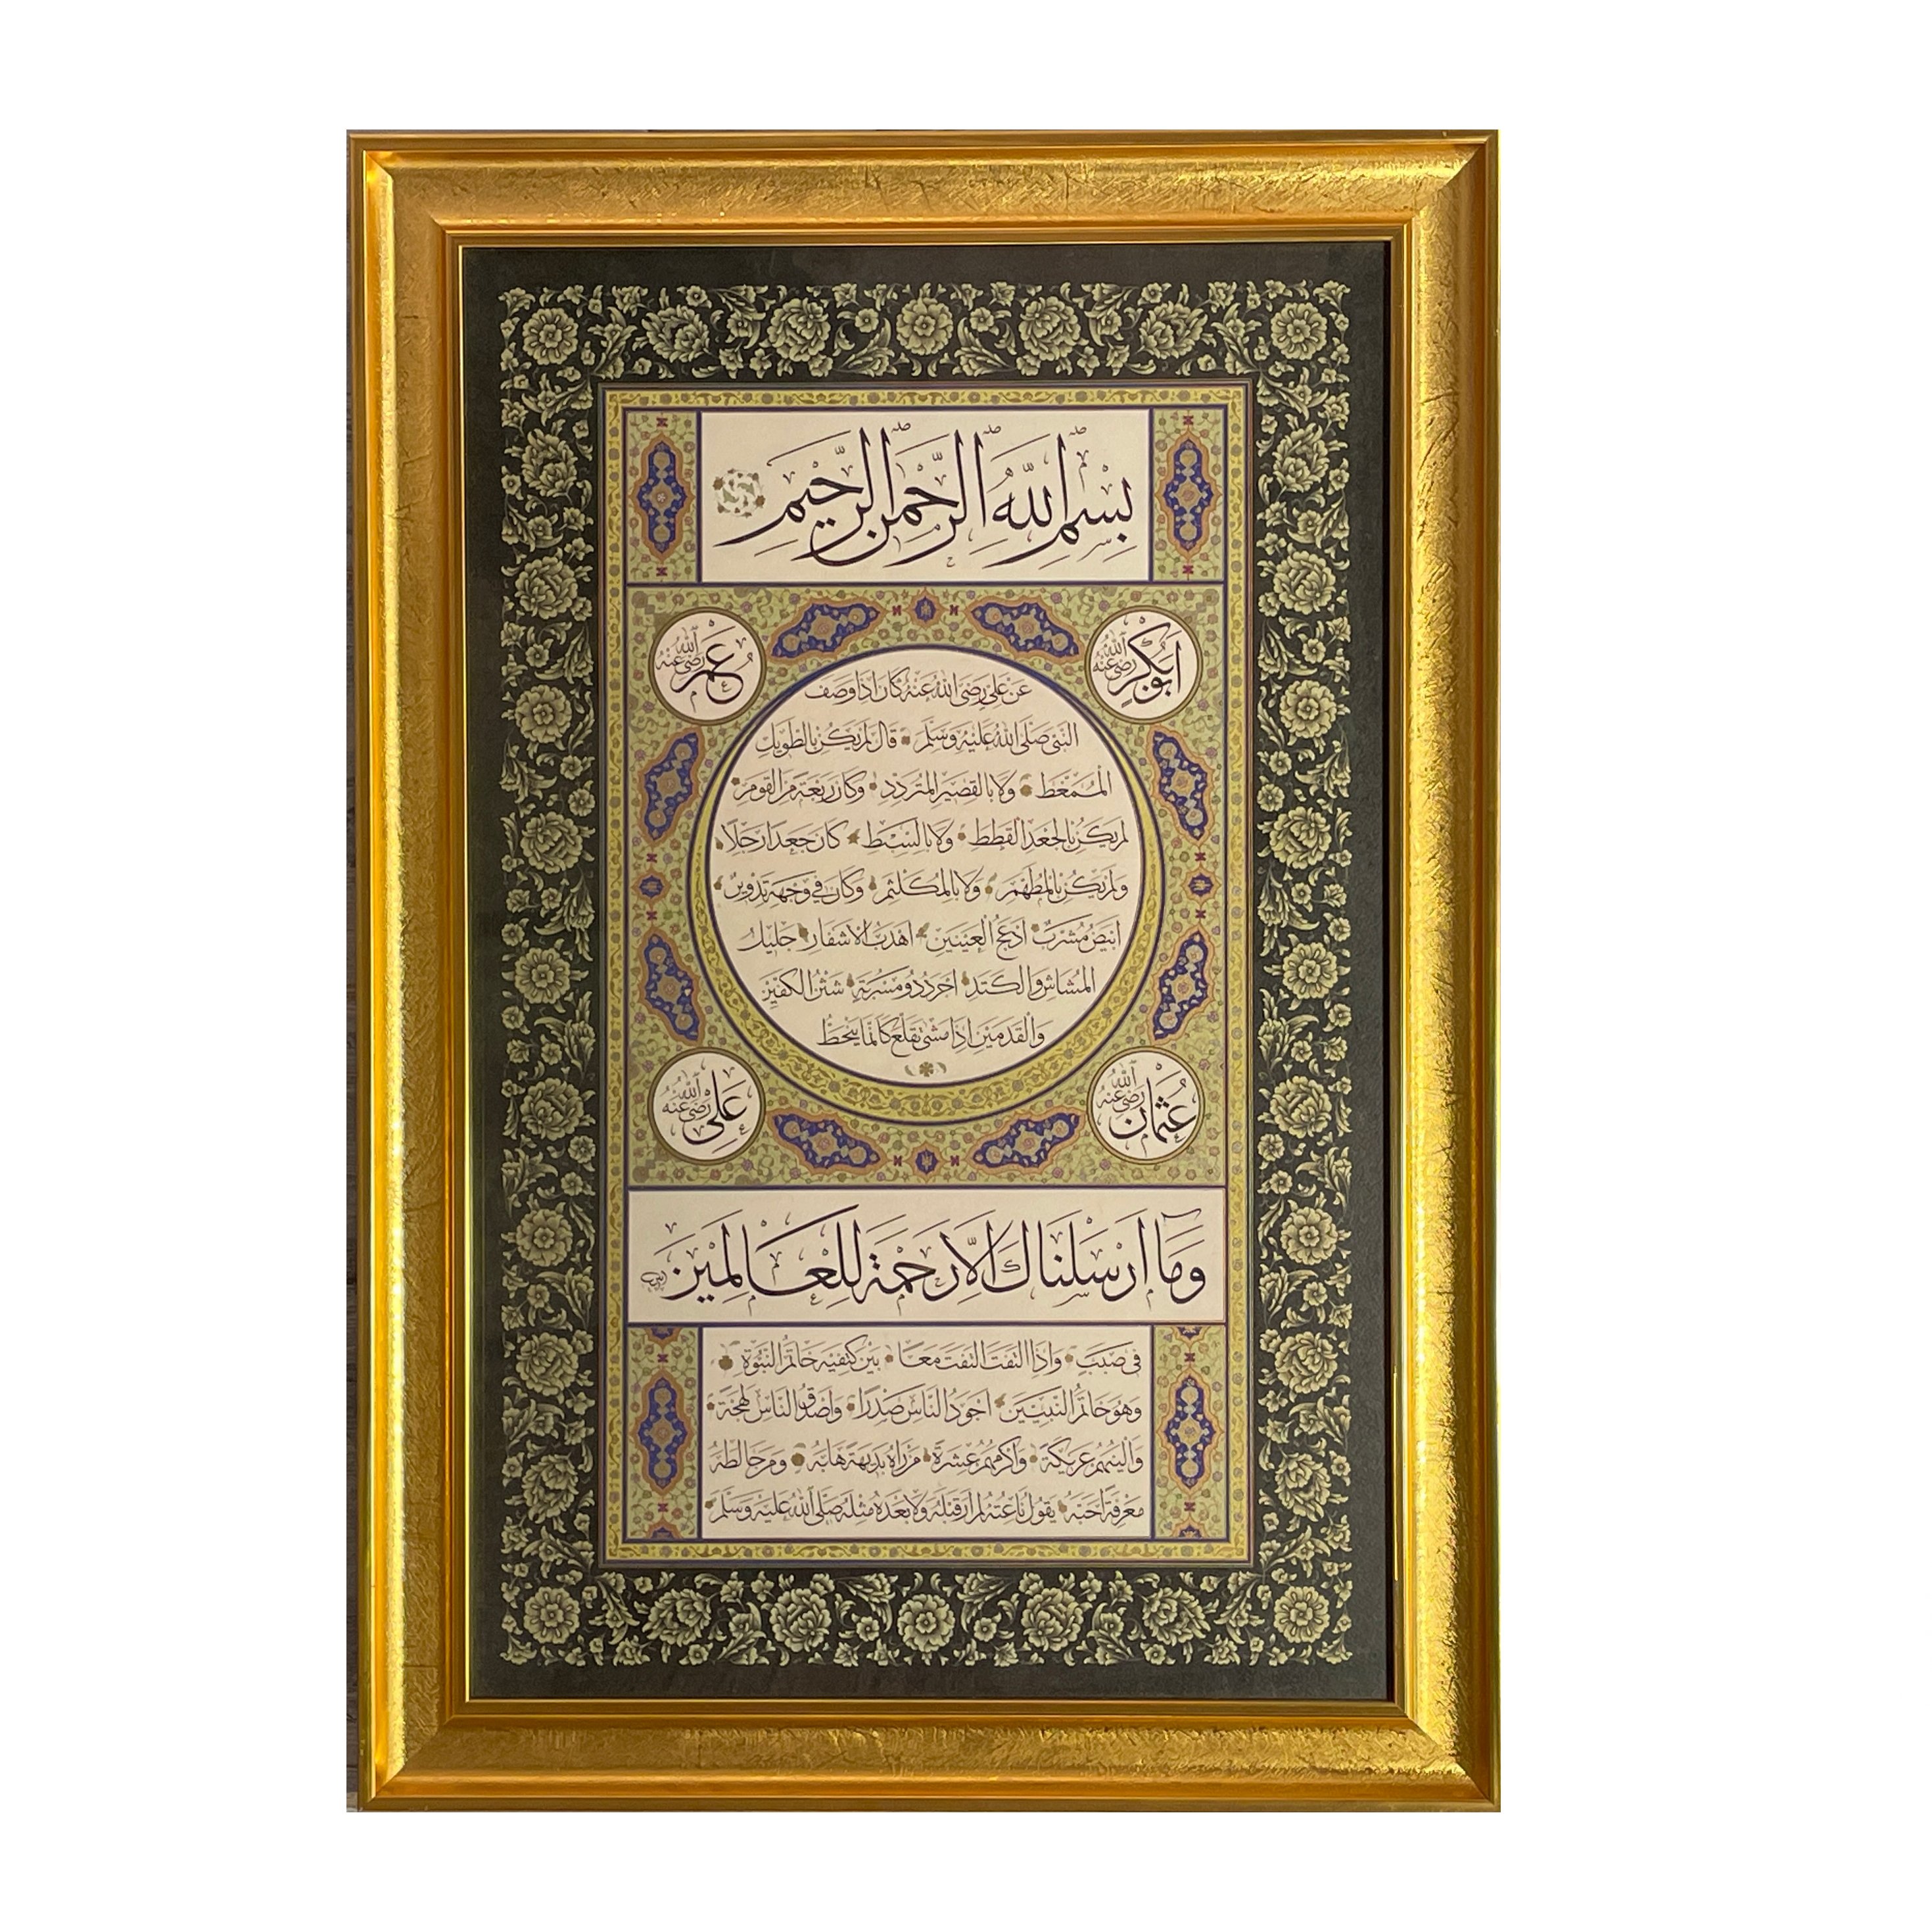 بِسْمِ اللهِ الرَّحْمٰنِ الرَّحِيمِ
اَبُوبَكْرٍ رَضِيَ اللهُ عَنْهُ
عُمَرْ رَضِيَ اللهُ عَنْهُ
عَنْ عَلِيٍّ رَضِيَ اللهُ عَنْهُ كَانَ اِذَا وَصَفَ
النَّبِيَّ صَلَّى اللهُ عَلَيْهِ وَسَلَّمَ قَالَ لَمْ يَكُنْ بِالطَّوِيلِ
الْمُمَّغِطِ وَلَا بِالْقَصِيرِ الْمُتَرَدِّدِ وَكَانَ رَبْعَةً مِنَ الْقَوْمِ
لَمْ يَكُنْ بِالْجَعْدِ الْقَطِطِ وَلَا بِالسَّبِطِ كَانَ جَعْدًا رَجِلًا
وَلَمْ يَكُنْ بِالْمُطَهَّمِ وَلَا بِالْمُكَلْثَمِ وَكَانَ فِي وَجْهِهِ تَدْوِيرٌ
اَبْيَضُ مُشْرَبٌ اَدْعَجُ الْعَيْنَيْنِ اَهْدَبُ الْاَشْفَارِ جَلِيلُ
الْمُشَاشِ وَالْكَتَدِ اَجْرَدُ ذُو مَسْرُبَةٍ شَثْنُ الْكَفَّيْنِ
وَالْقَدَمَيْنِ اِذَا مَشٰى تَقَلَّعَ كَاَنَّمَا يَنْحَطُّ
عُثْمَانْ رَضِيَ اللهُ عَنْهُ
عَلِي رَضِيَ اللهُ عَنْهُ
وَمَا اَرْسَلْنَاكَ اِلَّا رَحْمَةً لِلْعَالَمِينَ
فِي صَبَبٍ وَاِذَا الْتَفَتَ الْتَفَتَ مَعًا بَيْنَ كَتِفَيْهِ خَاتَمُ النُّبُوَّةِ
وَهُوَ خَاتَمُ النَّبِيِّينَ اَجْوَدُ النَّاسِ صَدْرًا وَاَصْدَقُ النَّاسِ لَهْجَةً
وَاَلْيَنُهُمْ عَرِيكَةً وَاَكْرَمُهُمْ عِشْرَةً مَنْ رَاٰهُ بَدِيهَةً هَابَهُ وَمَنْ خَالَطَهُ
مَعْرِفَةً اَحَبَّهُ يَقُولُ نَاعِتُهُ لَمْ اَرَ قَبْلَهُ وَلَا بَعْدَهُ مِثْلَهُ صَلَّى اللهُ عَلَيْهِ وَسَلَّمَ